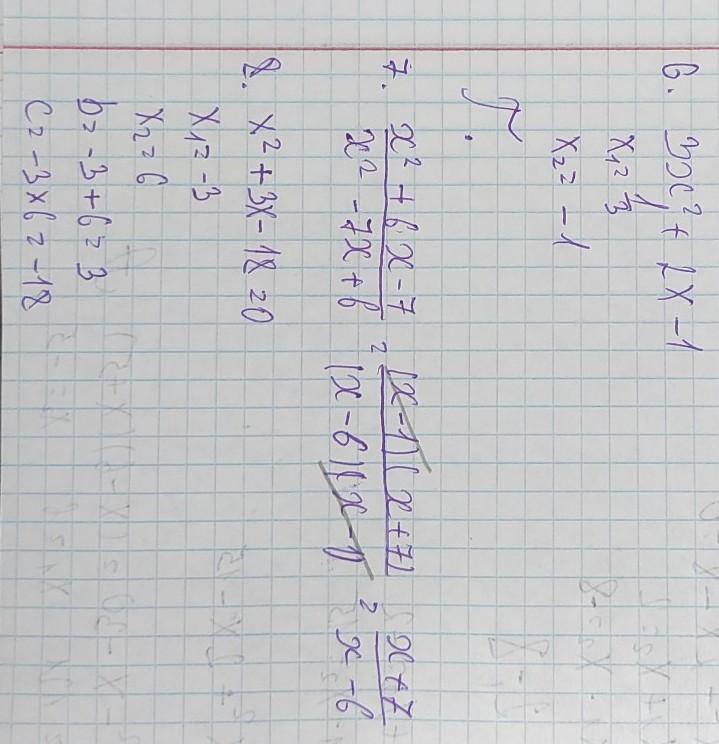 6. 3x² + 2x - 1
x₁ = 1/3
x₂ = -1
7. (x² + 6x - 7)/(x² - 7x + 6) = ((x-1)(x+7))/((x-6)(x-1)) = (x+7)/(x-6)
8. x² + 3x - 18 = 0
x₁ = -3
x₂ = 6
b = -3 + 6 = 3
c = -3 × 6 = -18